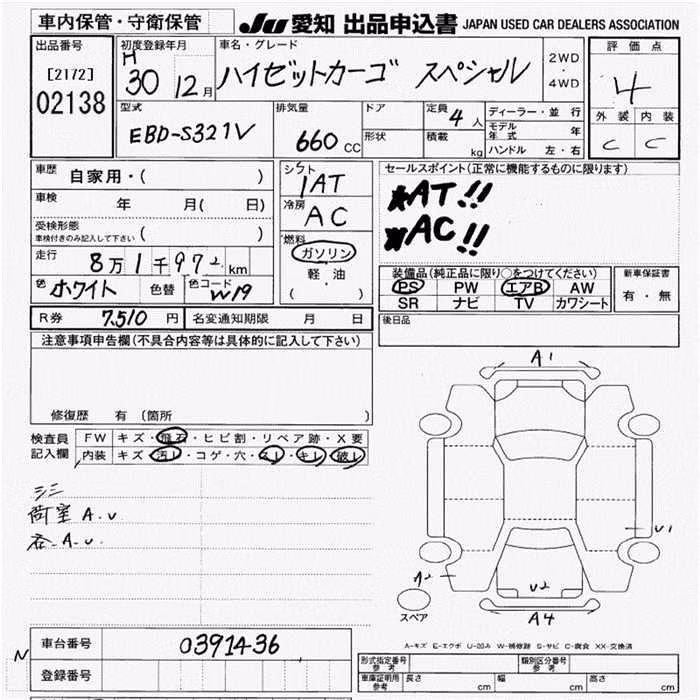 車内保管・守衛保管 JU 愛知 出品申込書 JAPAN USED CAR DEALERS ASSOCIATION
出品番号 初度登録年月 車名・グレード 2WD ・ 4WD 評価点
[2172] H 30 12月 ハイゼットカーゴ スペシャル 4
02138
型式 排気量 ドア 定員 4人 ディーラー・並行 外装 内装
EBD-S321V 660 CC 形状 積載 kg モデル年式 年 C C
ハンドル 左・右
車歴 自家用・( ) シフト 1AT セールスポイント(正常に機能するものに限ります)
車検 年 月( 日) 冷房 AC AT!!
受検形態 ( ) AC!!
車検付きのみ記入して下さい 燃料
走行 8万1千972km ガソリン 装備品(純正品に限り○をつけてください) 新車保証書
色 ホワイト 色替 色コード W19 軽・油 PS PW エアB AW 有・無
( ) SR ナビ TV カワシート
R券 7,510円 名変通知期限 月 日 後日品
注意事項申告欄(不具合内容等は具体的に記入して下さい)
修復歴 有 (箇所 )
検査員 FW キズ・飛石・ヒビ割・リペア跡・X要
記入欄 内装 キズ・汚れ・コゲ・穴・スレ・キレ・破れ
シミ
荷室 A.U
各 A.U
A1
U1
A2
U2
A4
スペア
A-キズ E-エクボ U-凹み W-補修跡 S-サビ C-腐食 XX-交換済
車台番号 0391436
N 登録番号
形式指定番号 参考 類別区分番号 参考
車庫証明用 参考 長さ cm 幅 cm 高さ cm